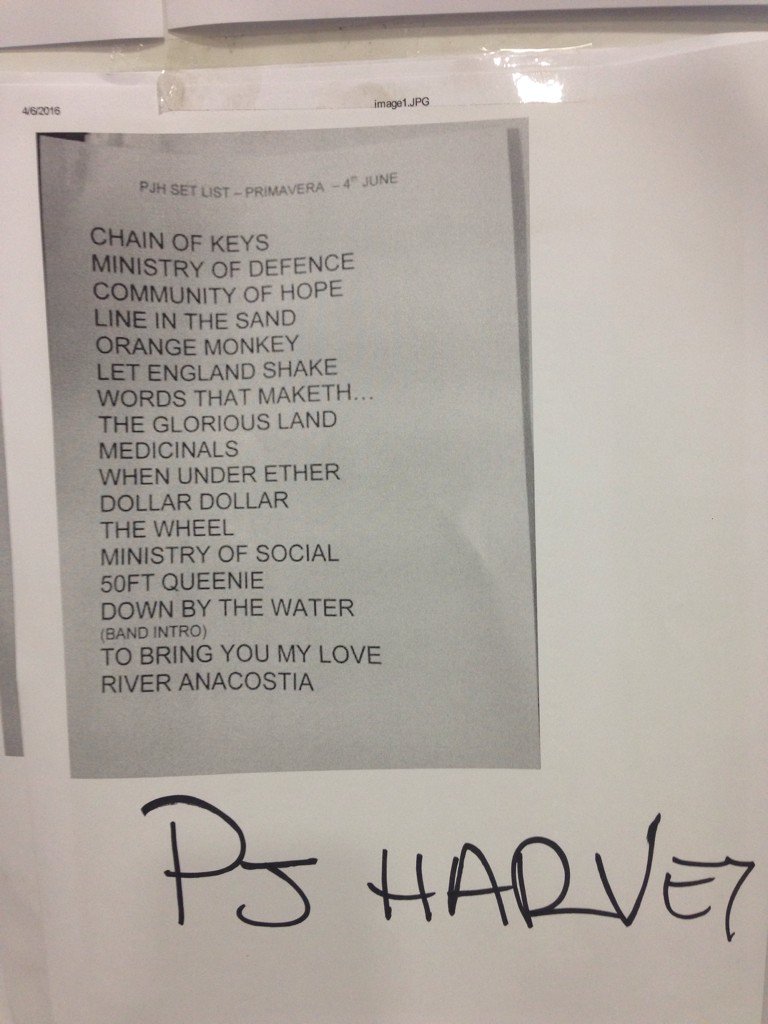 4/6/2016
image1.JPG
PJH SET LIST – PRIMAVERA – 4th JUNE
CHAIN OF KEYS
MINISTRY OF DEFENCE
COMMUNITY OF HOPE
LINE IN THE SAND
ORANGE MONKEY
LET ENGLAND SHAKE
WORDS THAT MAKETH...
THE GLORIOUS LAND
MEDICINALS
WHEN UNDER ETHER
DOLLAR DOLLAR
THE WHEEL
MINISTRY OF SOCIAL
50FT QUEENIE
DOWN BY THE WATER
(BAND INTRO)
TO BRING YOU MY LOVE
RIVER ANACOSTIA
PJ HARVEY